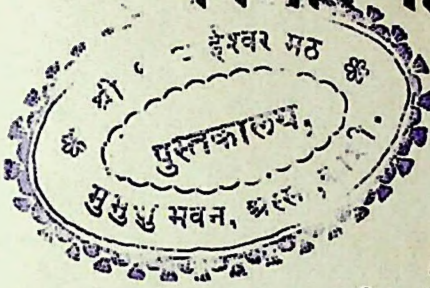 श्री ईश्वर मठ
पुस्तकालय,
मुमुक्षु भवन,